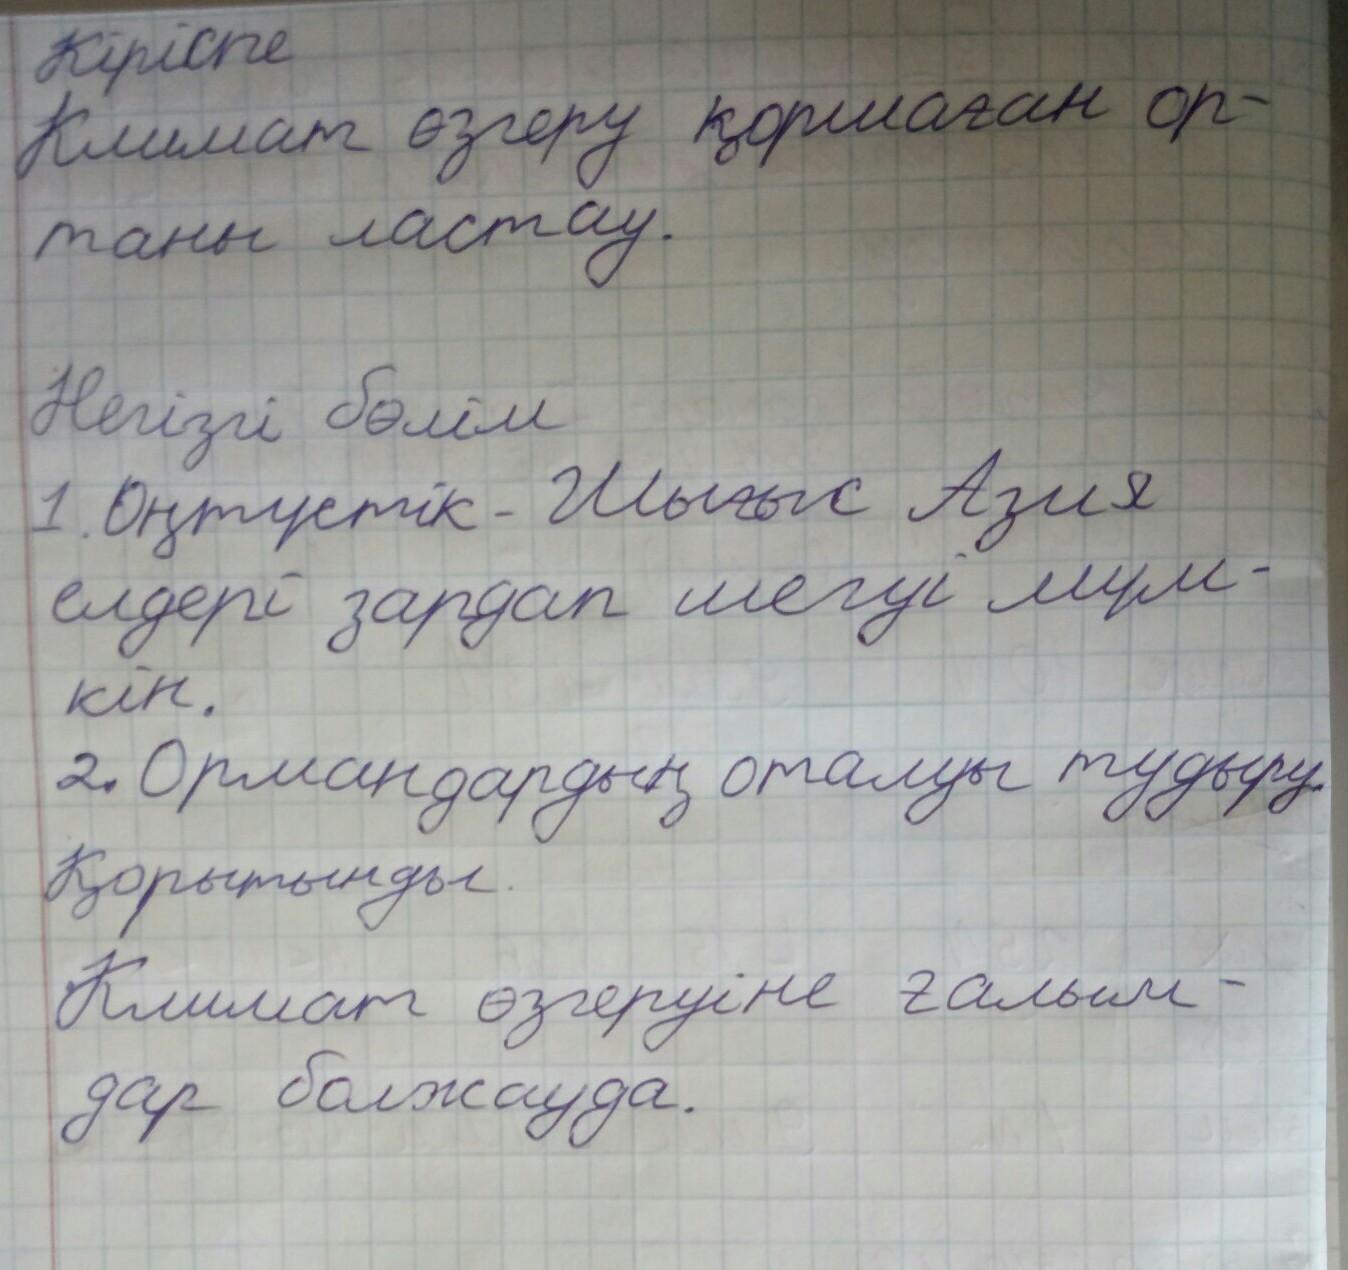 Кіріспе
Климат өзгеру қоршаған ор-
таны ластау.
Негізгі бөлім
1. Оңтүстік - Шығыс Азия
елдері зардап шегуі мүм-
кін.
2. Ормандардың оталуы тудыру.
Қорытынды.
Климат өзгеруіне ғалым-
дар болжауда.